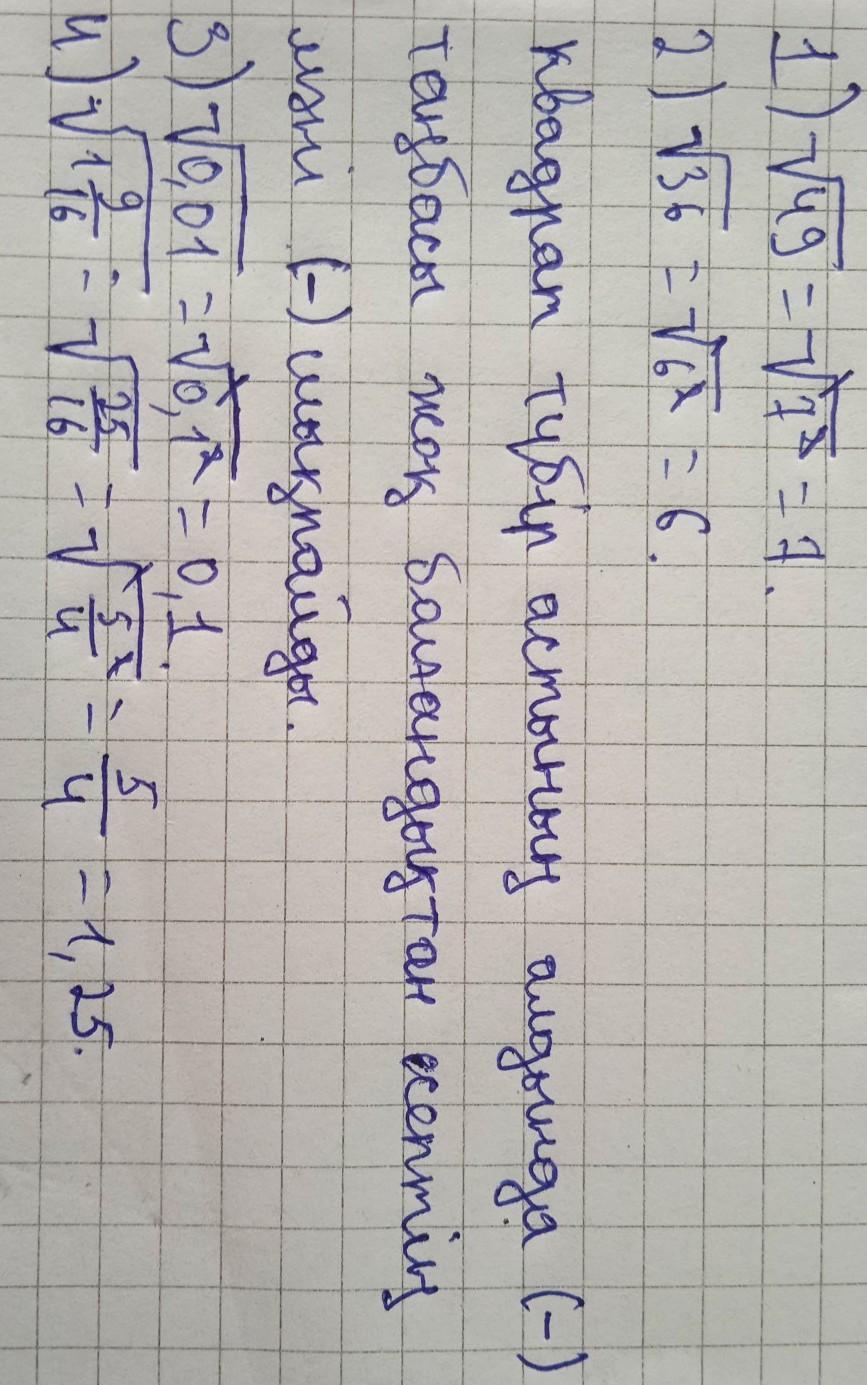 1) √49 = √7² = 7.
2) √36 = √6² = 6.
квадрат түбір астының алдында (-)
таңбасы жоқ балғандықтан есептің
мәні (-) шықпайды.
3) √0,01 = √0,1² = 0,1.
4) √1 9/16 = √25/16 = √5/4² = 5/4 = 1,25.